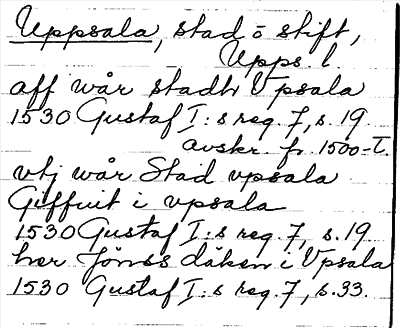 Uppsala, stad o stift,
Upps. l.
aff wår stadh Vpsala
1530 Gustaf I:s reg. 7, s. 19.
avskr. fr. 1500-t.
vtj wår Stad vpsala
Giffuit i vpsala
1530 Gustaf I:s reg. 7, s. 19.
her Jönss däken i Vpsala
1530 Gustaf I:s reg. 7, s. 33.